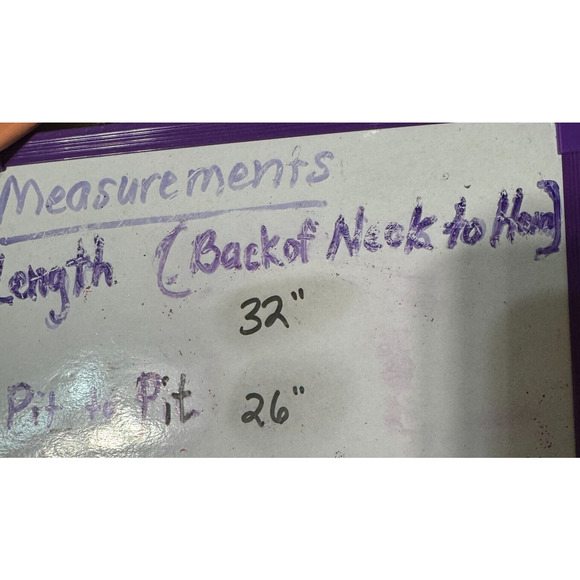 Measurements
Length (Back of Neck to Hem)
32"
Pit to Pit 26"